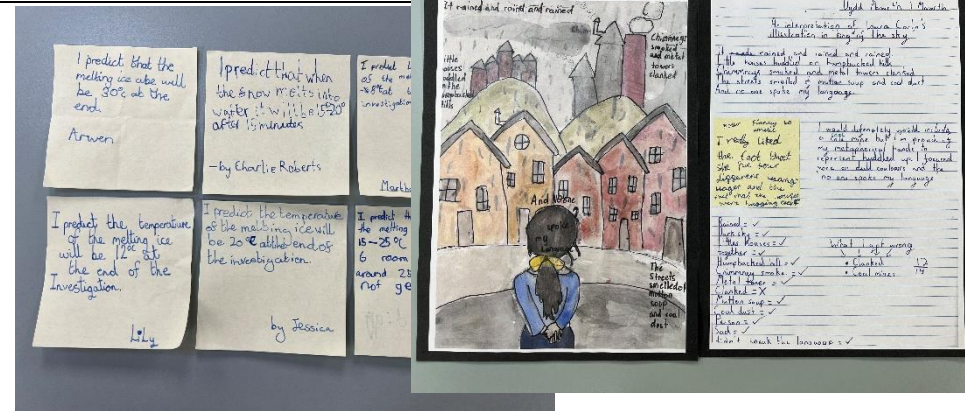 I predict that the
melting ice cube will
be 30°c at the
end.
Arwen
I predict that when
the snow melts into
water it will be 15-20°
after 15 minutes
-by Charlie Roberts
I predict
of the
at
investigation
Martha
I predict the temperature
of the melting ice
will be 12°c at
the end of the
Investigation.
Lily
I predict the temperature
of the melting ice will
be 20°c at the end of
the investigation.
by Jessica
I predict
the melting
15-25°C
6 room
around 25
not ge
It rained and rained and rained
little
houses
huddled
on the
humpbacked
hills
Chimneys
smoked
and metal
towers
clanked
And No one
spoke
my
language
The
streets
smelled of
mutton
soup
and coal
dust
interpretation of Laura Carlin's
illustration in King of the sky
It rained and rained and rained.
little houses huddled on humpbacked hills
Chimneys smoked and metal towers clanked
The streets smelled of mutton soup and coal dust
And no one spoke my language.
I really liked
the fact that
she put four
different
and the
that the
were
I would definitely
no one spoke my language
Rained = ✓
Dark sky = ✓
little houses = ✓
together = ✓
Humpbacked hill = ✓
Chimney smoke = ✓
Metal tower = ✓
Clanked = X
Mutton soup = ✓
Coal dust = ✓
Person = ✓
Sad = ✓
didn't speak the language = ✓
What I got wrong
• Clanked
• Coal mines